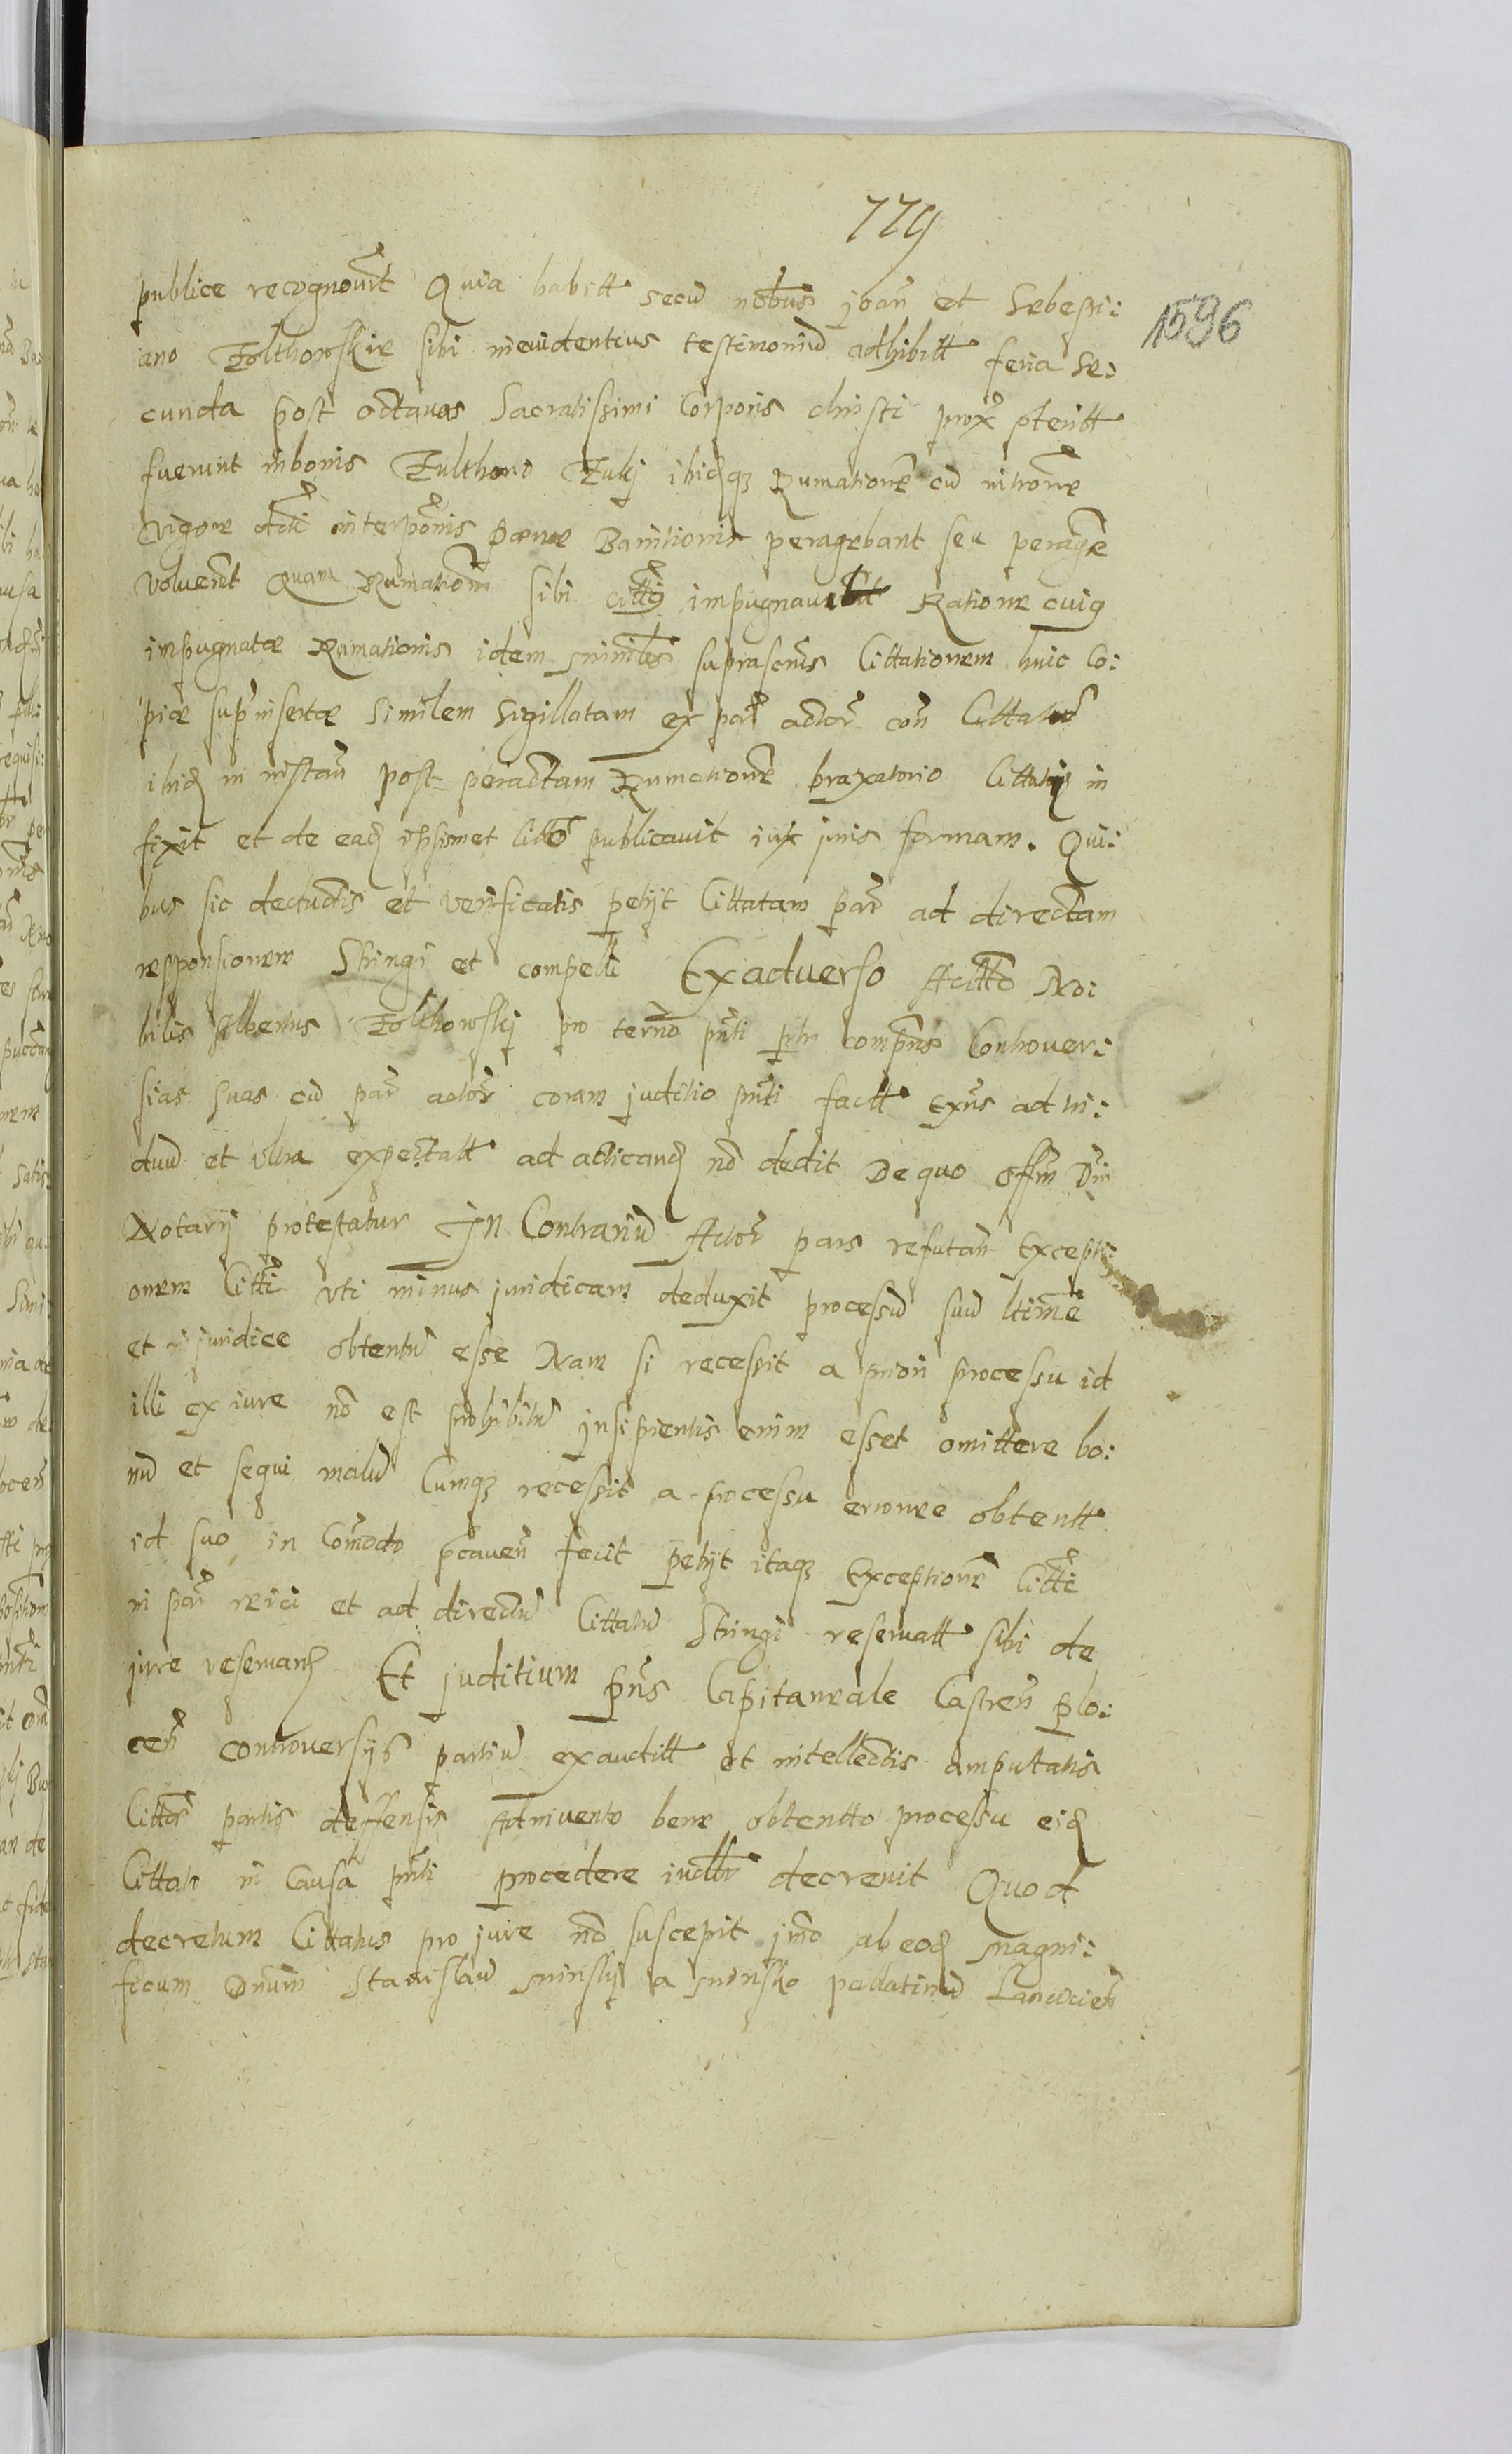 779
1596
publice recognovit Quia habitt secu nobus joan et Sebesti:
ano Zolthowskie sibi in evidentius testimoniu adhibitt feria Se:
cunda post octavas Sacratissimi Corporis christi prox pteritt
fuerunt in bonis Zulthowo Zulij ibidqz Rumatione cu introne
vigore interponis poenae Banitionis peragebant seu perage
voluerit Quam Rumationem sibi impugnavit Ratione cuig
impugnatae Rumationis idem minlis suprascrius Cittationem huic Co:
piae supinsertae Similem Sigillatam ex par actor con Cittatus
ibid in instan post peractam Rumatione braxatorio Cittati in
fixit et de ead ipsismet publicavit iux juris formam. Qui:
bus sic deductis et verificatis petyt Cittatam par ad directam
responsionem Stringi et compelli Exadverso No:
bilis Albertus Zolthowskj pro termo pnti comprns Controver:
sias suas cu par actor coram juditio pnti factt exns ad vi:
duu et ultra expectatt ad atticand no dedit De quo offm Dni
Notarij protestatur In Contrariu Actor pars refutan Excepti:
onem Citti uti minus juridicam deduxit processu suu ltime
et juridice obtentu esse Nam si recessit a priori processu id
illi ex iure no est prohibitu insipientis enim esset omittere bo:
nu et sequi malu Cumqz recessit a processu erronee obtentt
id suo in Comodo pcaven fecit petyt itaqz Exceptione Citti
in par reici et ad directu Cittatu Stringi reservatt sibi de
jure reservand Et juditium pns Capitaneale Castren plo:
cen controversijs partiu exauditt et intellectis amputatis
Cittae partis deffensis Adinvento bene obtentto processu eid
Cittato in Causa pnti procedere decrevit Quod
decretum Cittatus pro jure no suscepit jmo ab eod magni:
ficum Dnum Stanislau minskj a minsko pallatinu Lancicien